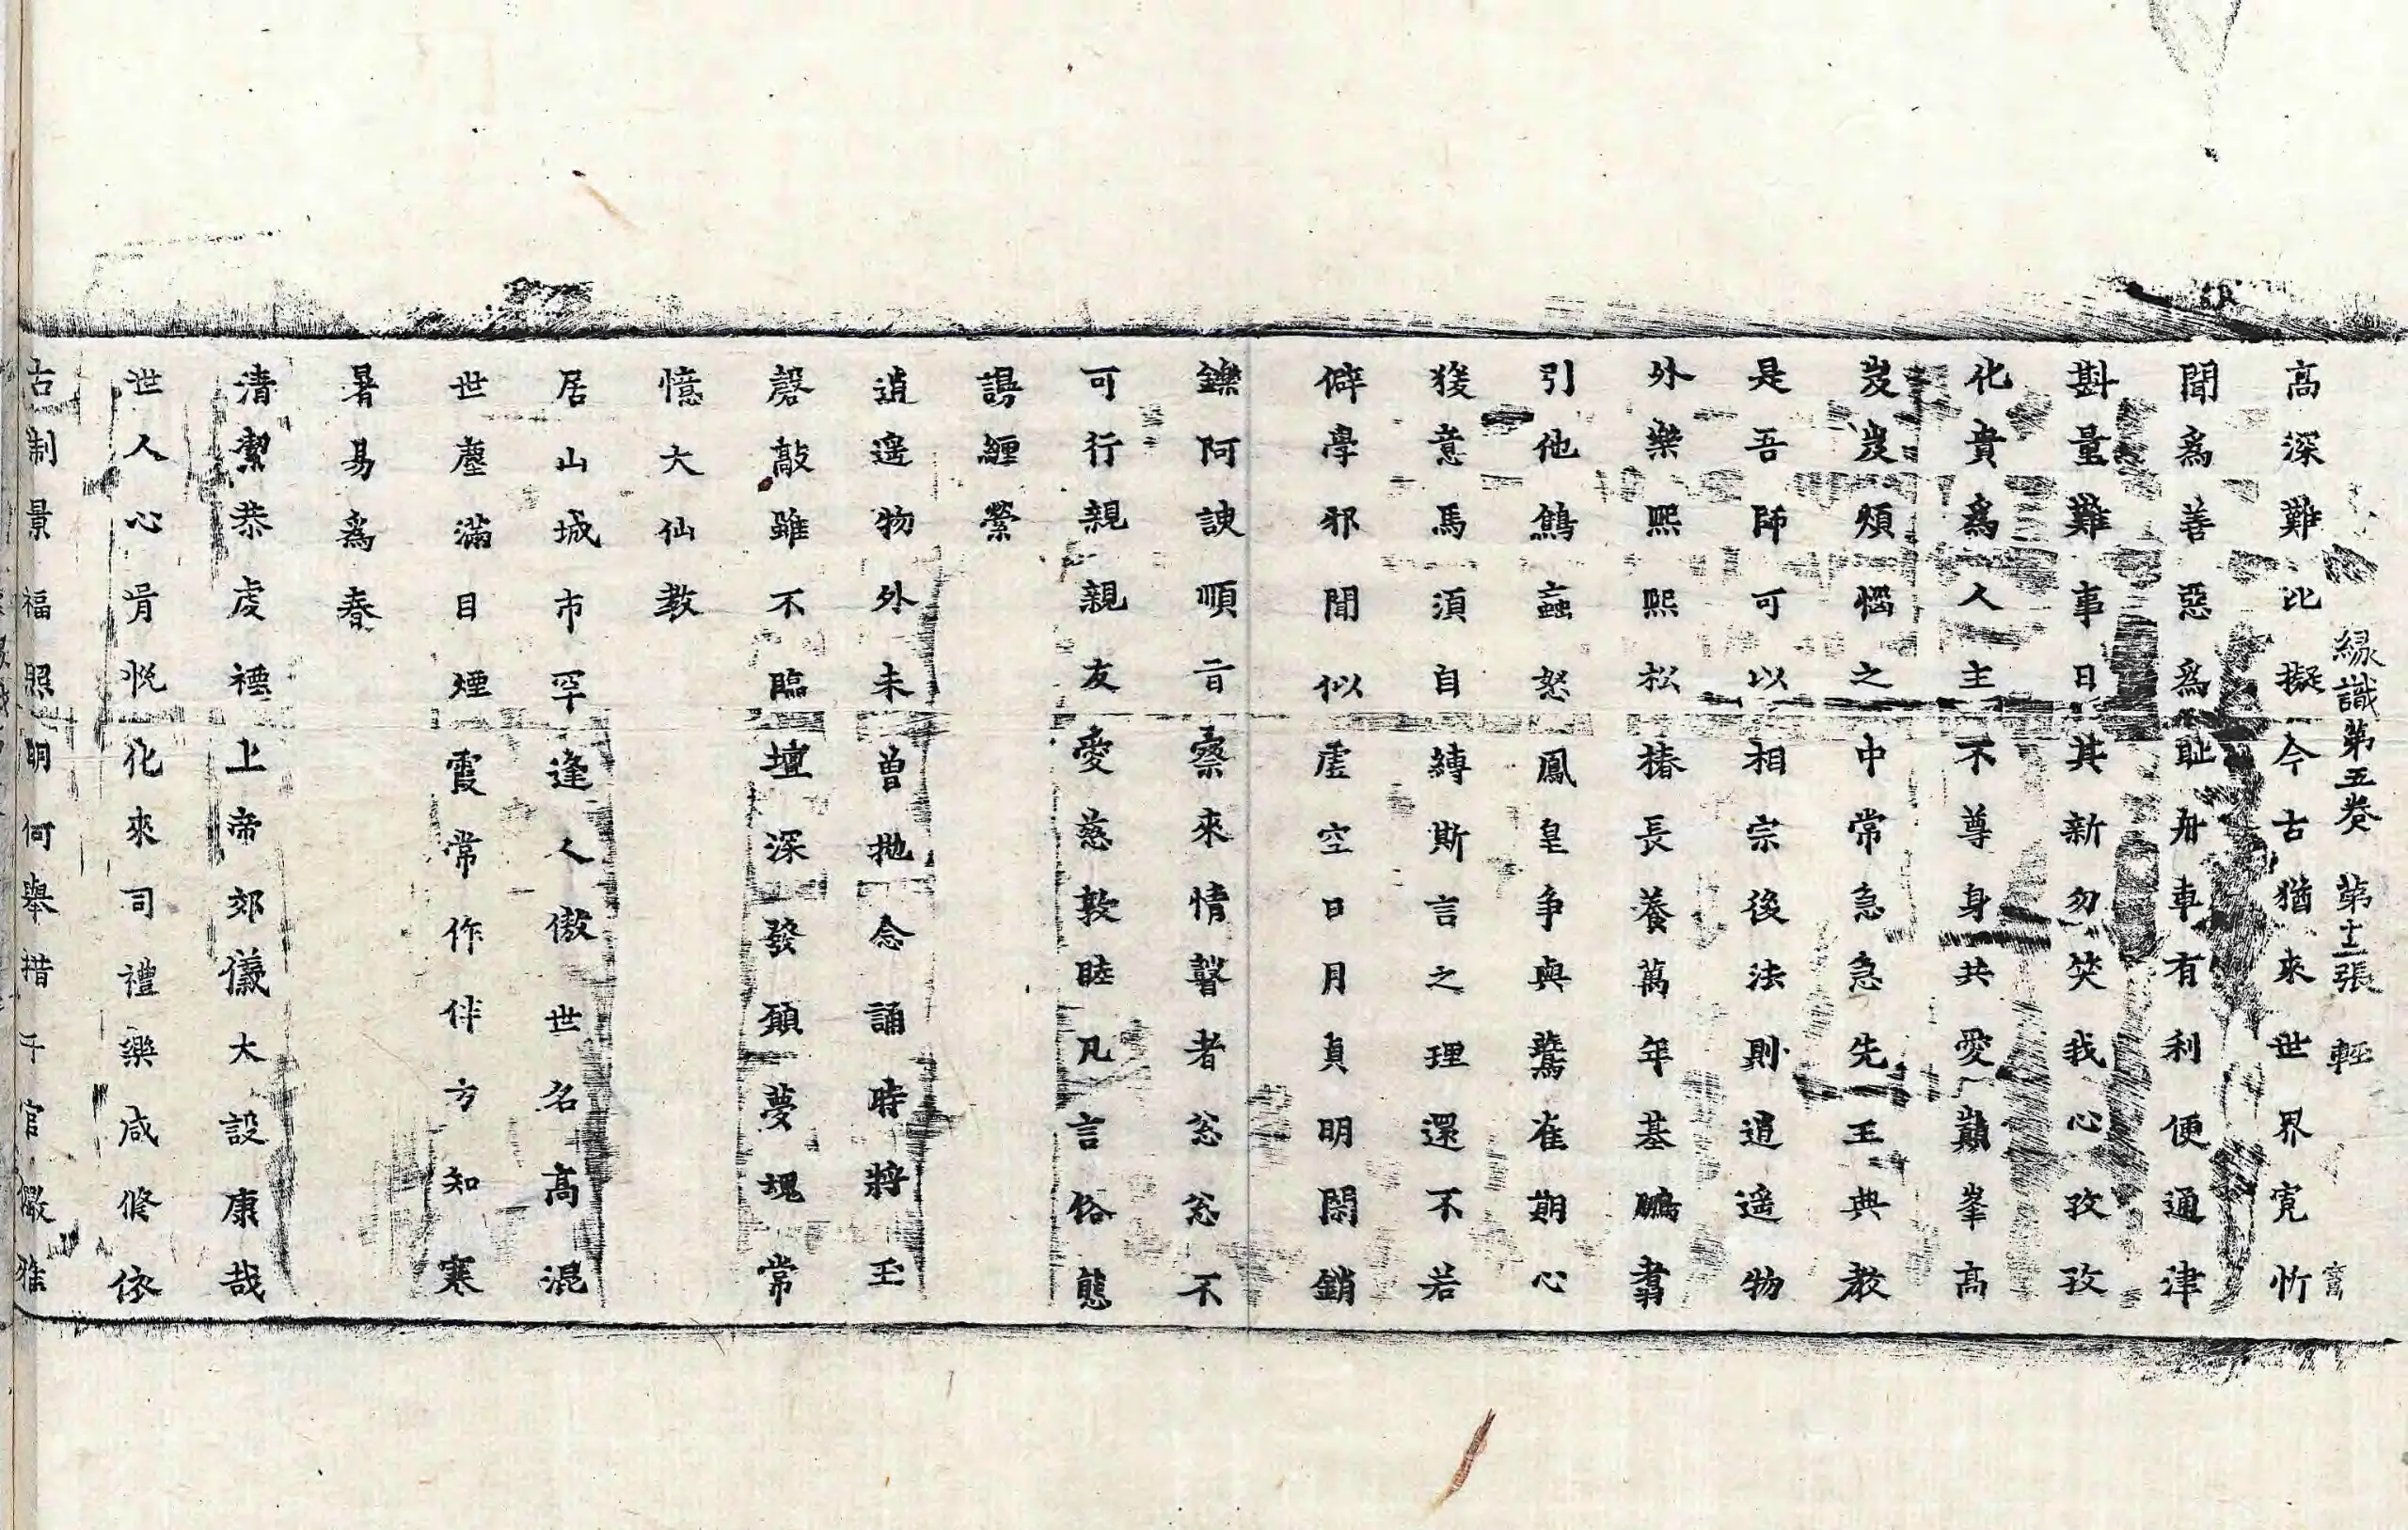 緣識第五卷 第十二張 輕
高深難比擬今古猶來世界寬忻
聞為善惡為恥舟車有利便通津
斟量難事日其新勿笑我心孜孜
化貴為人人主不尊身共愛巔峯高
岌岌煩惱之中常急急先王典教
是吾師可以相宗後法則逍遥物
外樂熙熙松椿長養萬年基鵬翥
引他鷦螽怒鳳皇爭與鷟雀期心
猨意馬須自縛斯言之理還不若
僻學邪聞似虛空日月貞明閟銷
鑠阿諛順旨叅來情瞽者忩忩不
可行親親友愛慈敦睦凡言俗態
謾纏縈
逍遥物外未曾拋念誦時將玉
磬敲雖不臨壇深發願夢魂常
憶大仙教
居山城市罕逢人傲世名高混
世塵滿目煙霞常作伴方知寒
暑易為春
清潔恭虔禋上帝郊儀大設康哉
世人心胥悅化來司禮樂咸脩依
古制景福照明何舉措千官儼雅